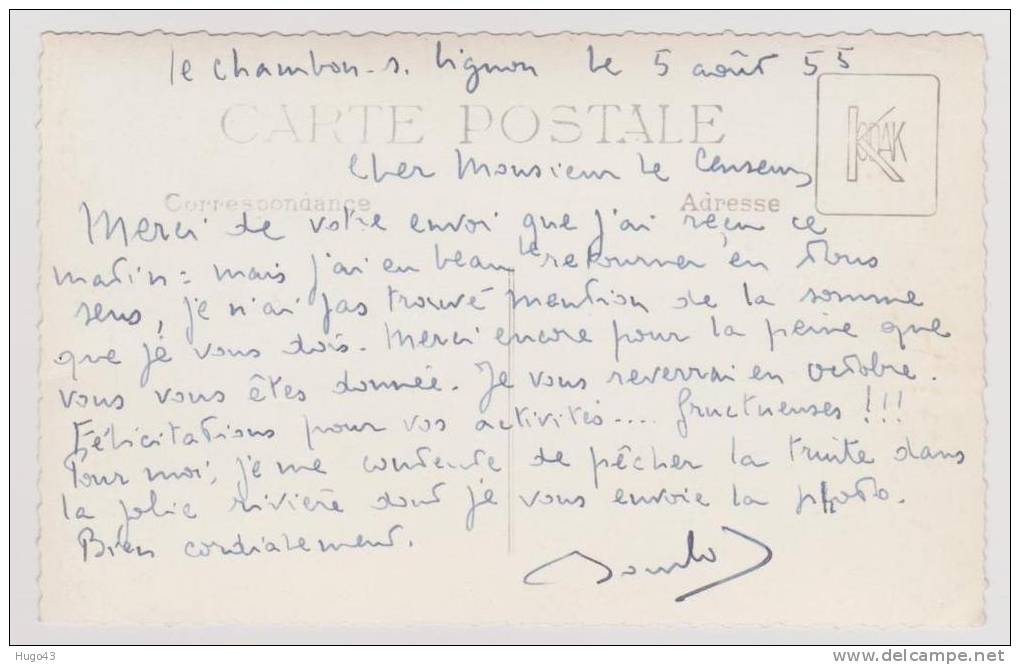 le chambon-s. Lignon le 5 août 55
CARTE POSTALE
KODAK
Cher Monsieur le Censeur,
Correspondance
Adresse
Merci de votre envoi que j'ai reçu ce
matin : mais j'ai eu beau le retourner en tous
sens, je n'ai pas trouvé mention de la somme
que je vous dois. Merci encore pour la peine que
vous vous êtes donnée. Je vous reverrai en octobre.
Félicitations pour vos activités.... fructueuses !!!
Pour moi, je me contente de pêcher la truite dans
la jolie rivière dont je vous envoie la photo.
Bien cordialement.
Hugo43
http://www.delcampe.net